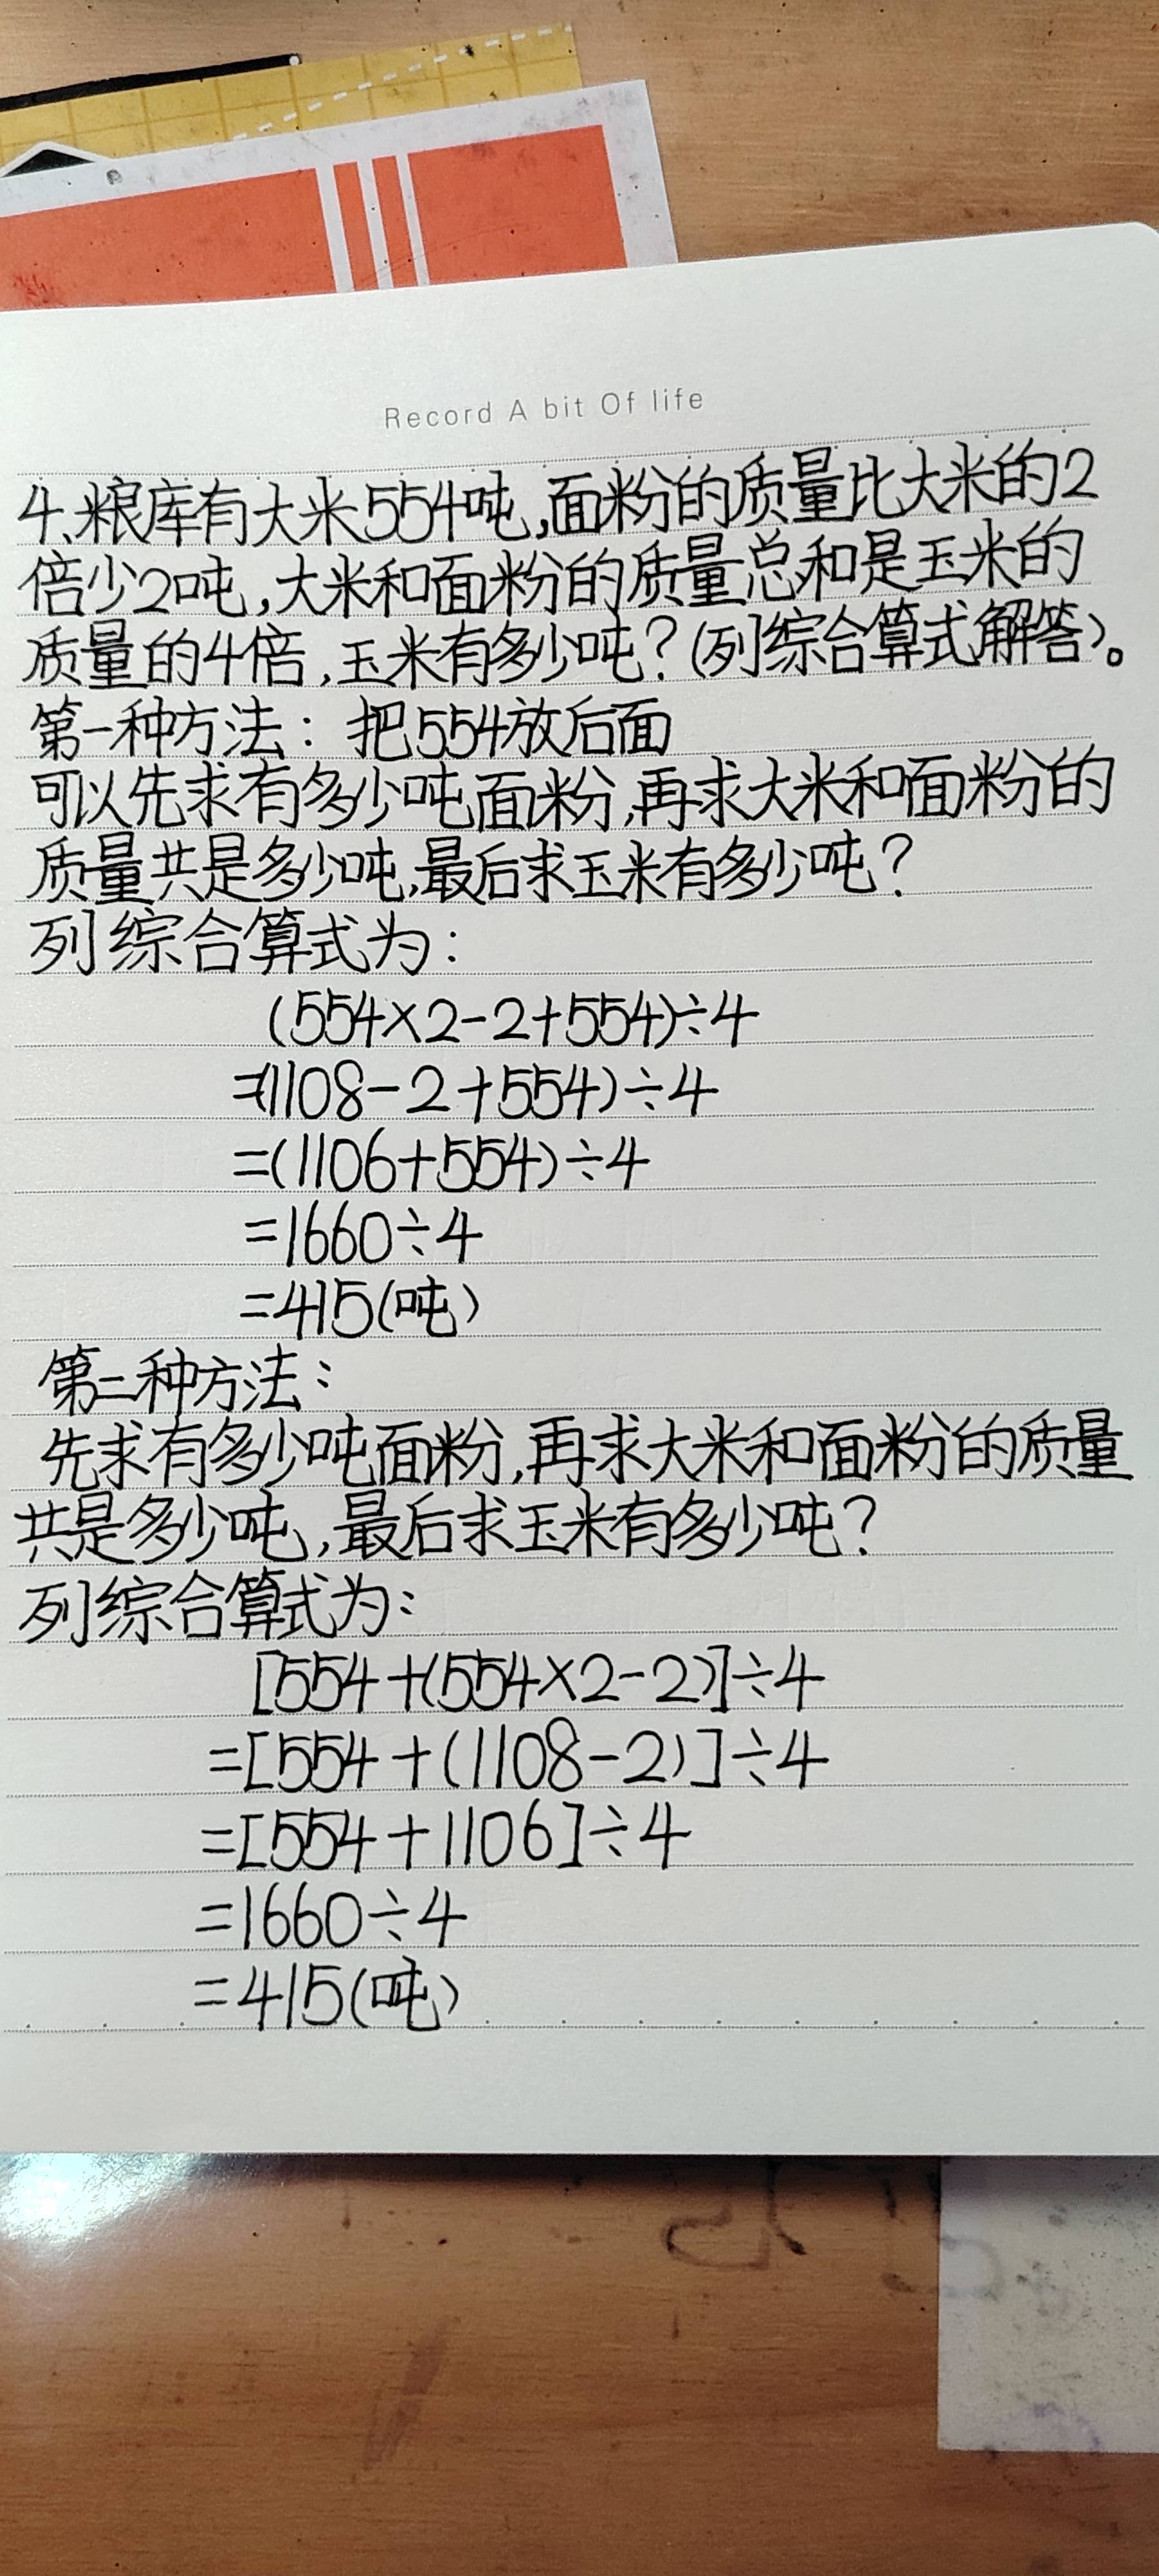 Record A bit Of life
4、粮库有大米554吨,面粉的质量比大米的2
倍少2吨,大米和面粉的质量总和是玉米的
质量的4倍,玉米有多少吨?(列综合算式解答)。
第一种方法：把554放后面
可以先求有多少吨面粉,再求大米和面粉的
质量共是多少吨,最后求玉米有多少吨?
列综合算式为：
(554×2-2+554)÷4
=(1108-2+554)÷4
=(1106+554)÷4
=1660÷4
=415(吨)
第二种方法：
先求有多少吨面粉,再求大米和面粉的质量
共是多少吨,最后求玉米有多少吨?
列综合算式为：
[554+(554×2-2)]÷4
=[554+(1108-2)]÷4
=[554+1106]÷4
=1660÷4
=415(吨)